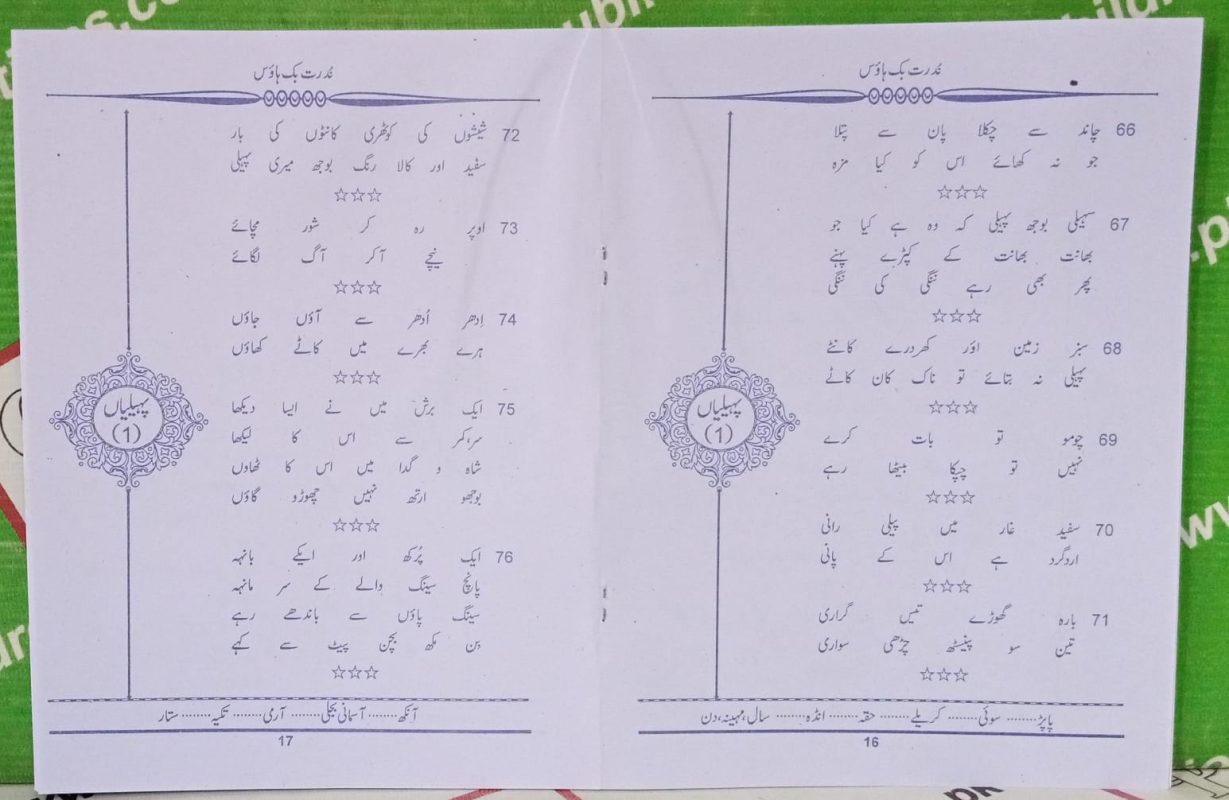 ندرت بک ہاؤس
66 چاند سے چکلا پان سے پتلا
جو نہ کھائے اس کو کیا مزہ
☆☆☆
67 سہیلی بوجھ پہیلی کہ وہ ہے کیا جو
بھانت بھانت کے کپڑے پہنے
پھر بھی رہے ننگی کی ننگی
☆☆☆
68 سبز زمین اور کھردرے کانٹے
پہیلی نہ بتائے تو ناک کان کاٹے
☆☆☆
69 چومو تو بات کرے
نہیں تو چپکا بیٹھا رہے
☆☆☆
70 سفید غار میں پیلی رانی
اردگرد ہے اس کے پانی
☆☆☆
71 بارہ گھوڑے تیس گراری
تین سو پینسٹھ چڑھی سواری
☆☆☆
پہیلیاں
(1)
پاپڑ ........ سوئی ........ کریلے ........ حقہ ........ انڈہ ........ سال، مہینہ، دن
16
ندرت بک ہاؤس
72 شیشوں کی کوٹھری کانٹوں کی بار
سفید اور کالا رنگ بوجھ میری پہیلی
☆☆☆
73 اوپر رہ کر شور مچائے
نیچے آکر آگ لگائے
☆☆☆
74 اِدھر اُدھر سے آؤں جاؤں
ہرے بھرے میں کاٹے کھاؤں
☆☆☆
75 ایک برش میں نے ایسا دیکھا
سر، کمر سے اس کا لیکھا
شاہ و گدا میں اس کا ٹھاوں
بوجھو ارتھ نہیں چھوڑو گاؤں
☆☆☆
76 ایک پُرکھ اور ایکے بانہہ
پانچ سینگ والے کے سر مانہہ
سینگ پاؤں سے باندھے رہے
بن مکھ بچن پیٹ سے کہے
☆☆☆
پہیلیاں
(1)
آنکھ ........ آسمانی بجلی ........ آرمی ........ تکیہ ........ ستار
17